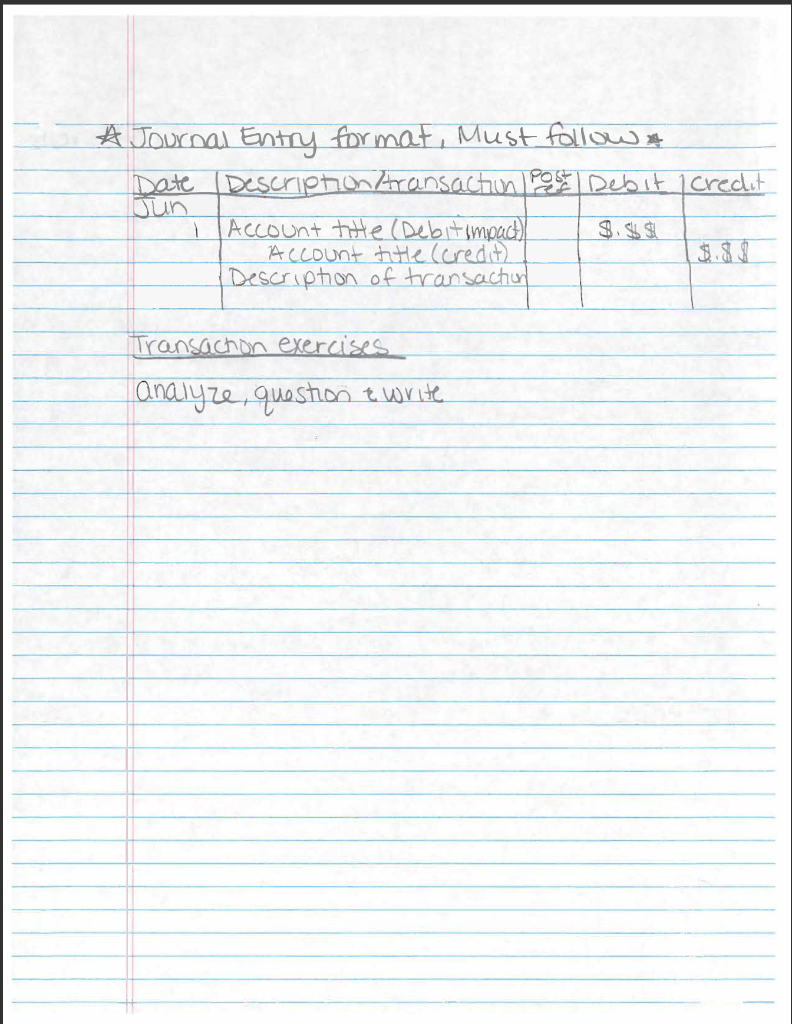 ☆ Journal Entry format, Must follow ★
Date | Description/transaction | Post ref | Debit | Credit
Jun
1 | Account title (Debit impact) $.$$
Account title (credit) $.$$
Description of transaction
Transaction exercises
analyze, question & write